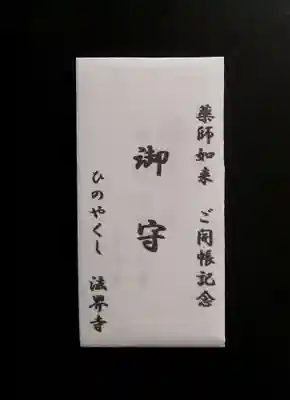 薬師如来 ご開帳記念
御守
ひのやくし 法界寺